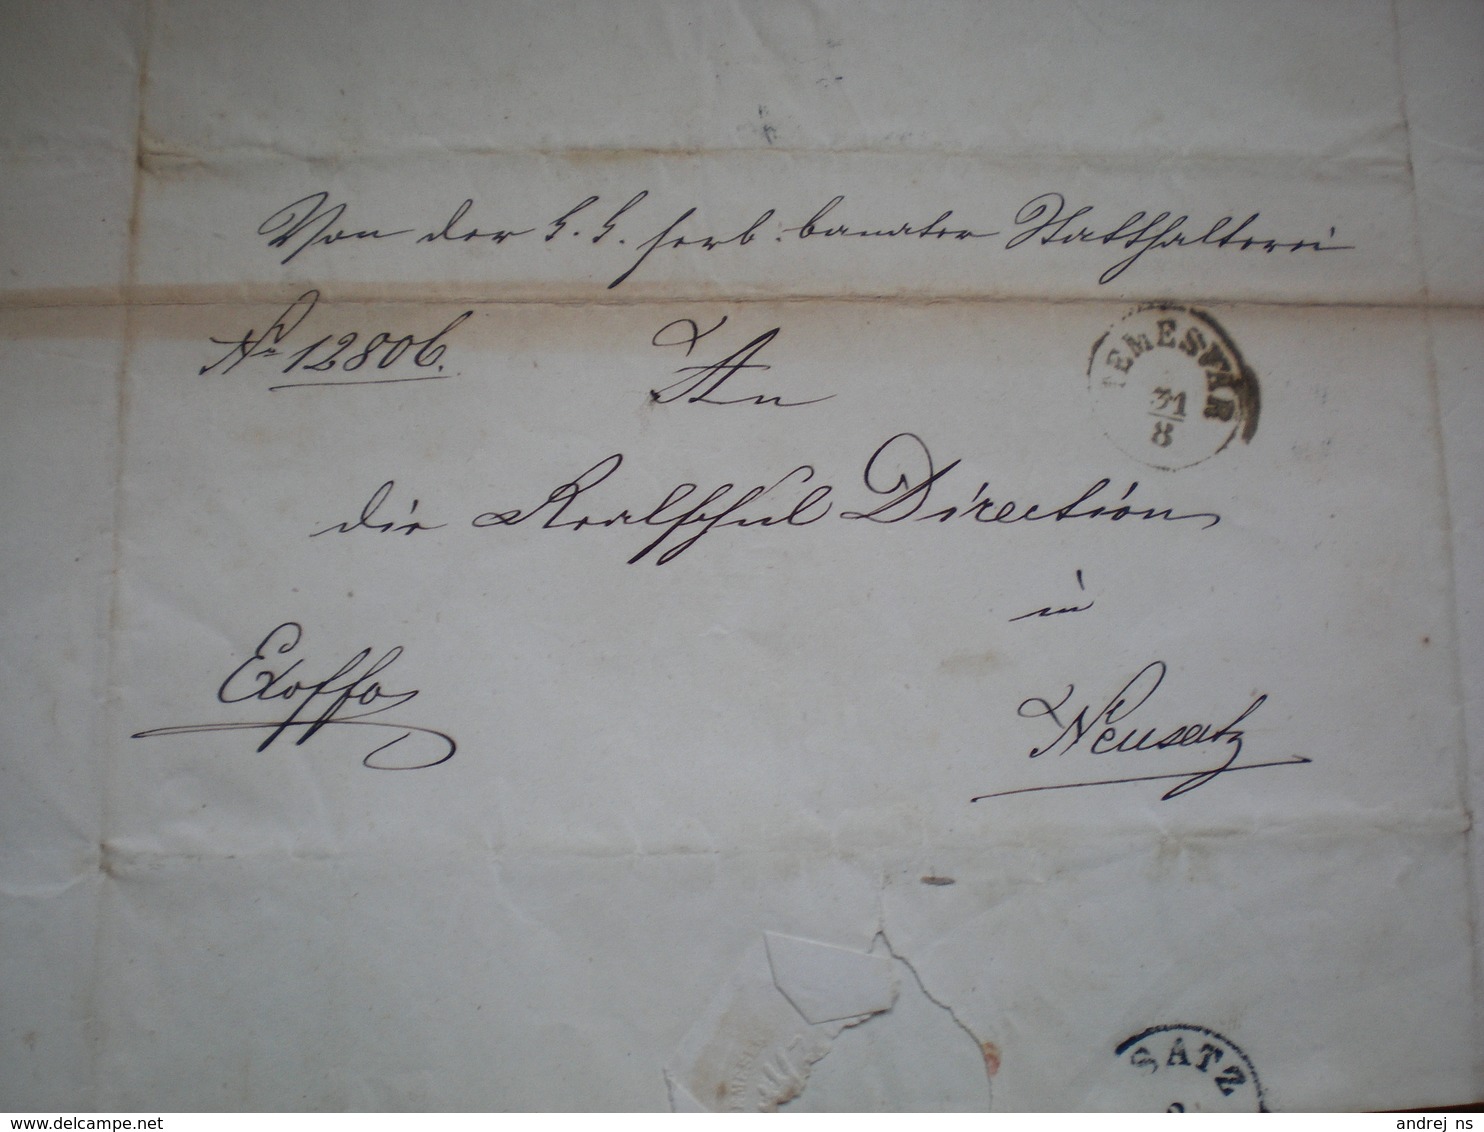 Von der k. k. serb. banater Statthalterei
No 12806.
An
TEMESVÁR
31/8
die Realschul Direction
in
Exoffo
Neusatz
SATZ
delcampe.net
andrej_ns